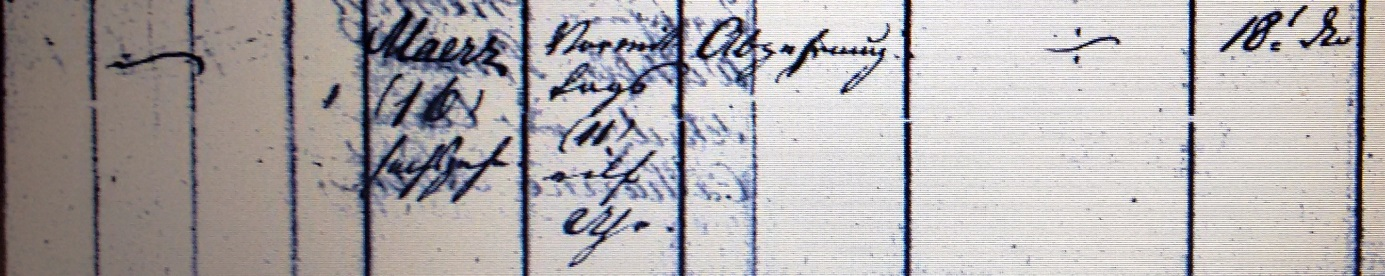 Maerz
(16)
sechszehn
Vormit
tags
(11)
eilf
Uhr.
Abzehrung.
÷
18.